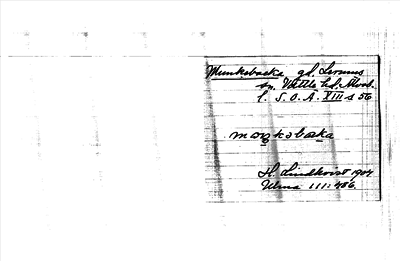 Munkebacka gl. Lerums
sn. Vättle hd. Älvsb.
l. S.O.Ä. XIII s 56
moŋkəbaka
H. Lindkvist 1904
Ulma 111:406.